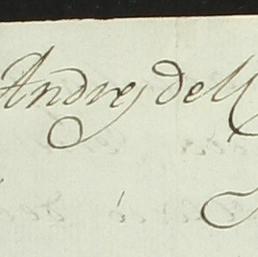 Andres de M